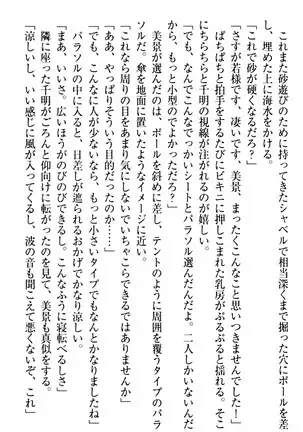 これまた砂遊びのために持ってきたシャベルで相当深くまで掘った穴にポールを差
し、埋めた上に海水をかける。
「これで砂が硬くなるだろ？」
「さすが若様です、凄いです。美景、まったくこんなこと思いつきませんでした！」
ぱちぱちと拍手をするたびにビキニに押しこめられた乳房がぷるぷると揺れる。そこ
にちらちらと千明の視線が注がれるのが嬉しい。
「でも、なんでこんなでっかいシートとパラソル選んだんだよ。二人しかいないんだ
から、もっと小型のでよかっただろ？」
美景が選んだのは、ポールを斜めに差し、テントのように周囲を覆うタイプのパラ
ソルだ。傘を地面にかぶせたようなイメージに近い。
「これなら周りの目をあまり気にしないでいちゃこらできるではありませんか」
「あ、やっぱりそういう目的だったのか……」
「でも、こんなに人が少ないなら、もっと小さいタイプでもなんとかなりましたね」
パラソルの中に入ると、日差しが遮られるおかげでかなり涼しい。
「まあ、いいさ。広いほうがのびのびできるし。こんなふうに寝転べるしさ」
隣に座った千明がごろんと仰向けに転がったのを見て、美景も真似をする。
「おお、涼しいし、いい感じに風が入ってくるし、波の音も聞こえて悪くないぞ、これ」